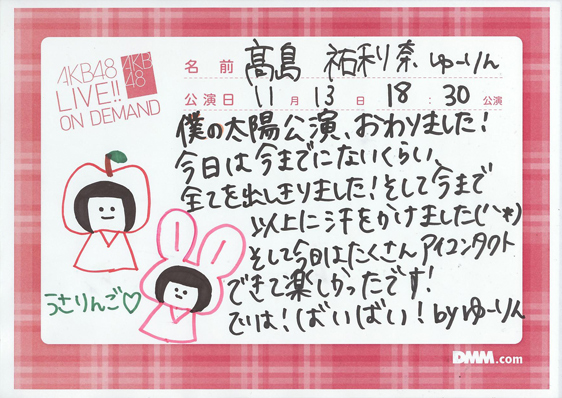 AKB48
LIVE!!
ON DEMAND
AKB
48
名前 髙島 祐利奈 ゆーりん
公演日 11月13日 18:30公演
僕の太陽公演、おわりました!
今日は今までにないくらい、
全てを出しきりました!そして今まで
以上に汗をかけました(^^*)
そして今日はたくさんアイコンタクト
できて楽しかったです!
では!ばいばい!byゆーりん
うさりんご♡
DMM.com